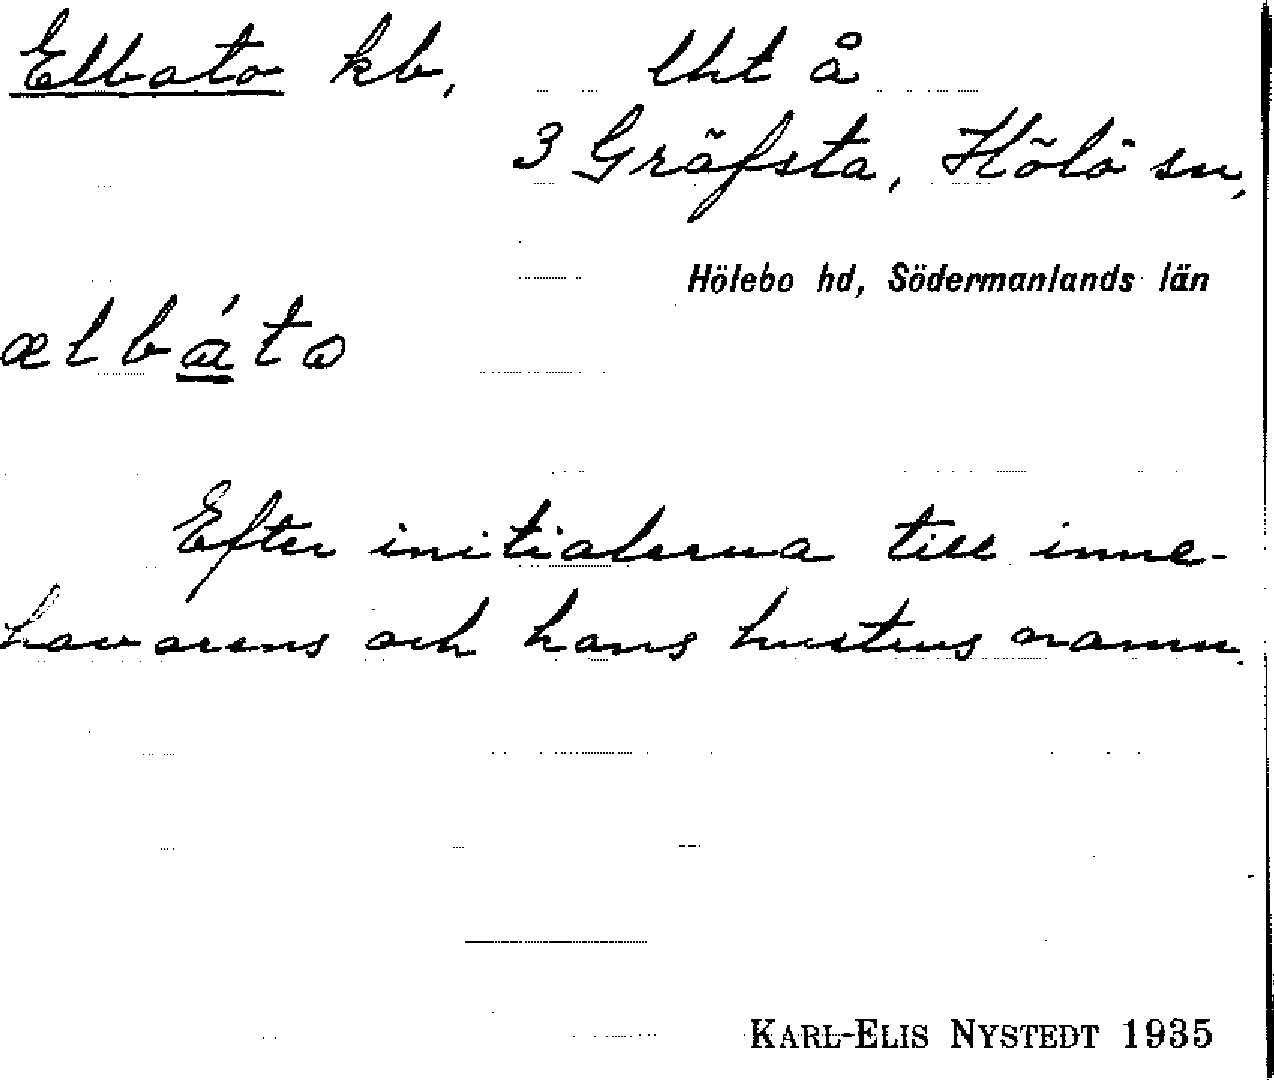 Elbato kb, lht å
3 Gräfsta, Hölö sn,
Hölebo hd, Södermanlands län
ælbáto
Efter initialerna till inne-
havarens och hans hustrus namn.
KARL-ELIS NYSTEDT 1935